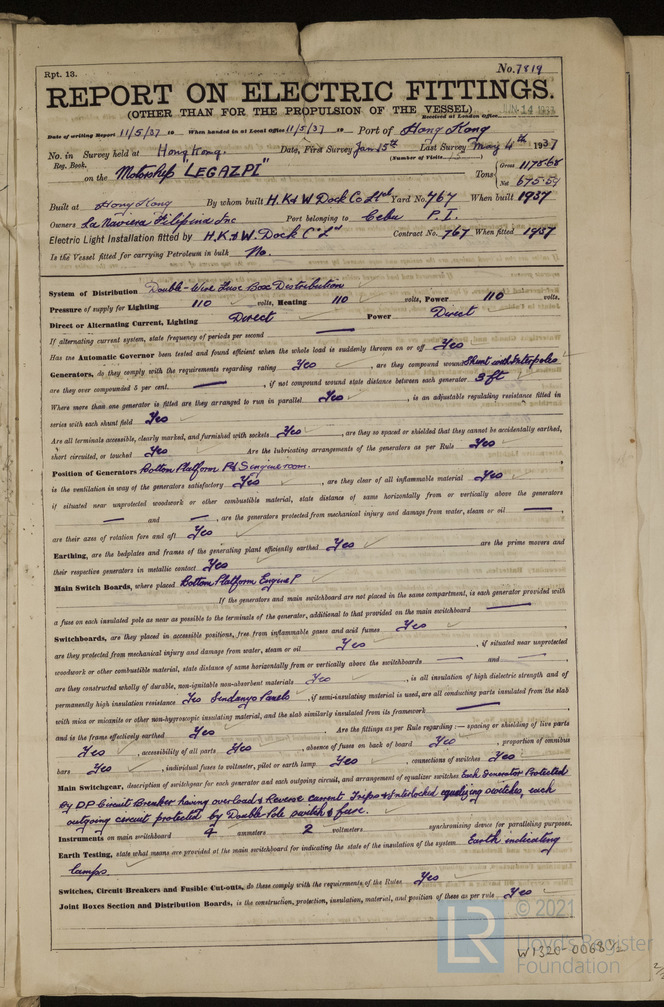 Rpt. 13.
No. 7819
REPORT ON ELECTRIC FITTINGS.
(OTHER THAN FOR THE PROPULSION OF THE VESSEL)
Received at London Office JUN 14 1937
Date of writing Report 11/5/37 19 When handed in at Local Office 11/5/37 19 Port of Hong Kong
No. in Survey held at Hong Kong. Date, First Survey Jan 15th Last Survey May 4th 1937
Reg. Book. (Number of Visits 15)
on the Motorship "LEGAZPI" Tons Gross 1178.68
Net 675.59
Built at Hong Kong By whom built H.K. & W. Dock Co Ltd Yard No. 767 When built 1937
Owners La Naviera Filipina Inc Port belonging to Cebu P.I.
Electric Light Installation fitted by H.K. & W. Dock Co Ld Contract No. 767 When fitted 1937
Is the Vessel fitted for carrying Petroleum in bulk No.
System of Distribution Double-Wire Fuse Box Distribution
Pressure of supply for Lighting 110 volts, Heating 110 volts, Power 110 volts.
Direct or Alternating Current, Lighting Direct Power Direct
If alternating current system, state frequency of periods per second —
Has the Automatic Governor been tested and found efficient when the whole load is suddenly thrown on or off Yes
Generators, do they comply with the requirements regarding rating Yes, are they compound wound Shunt with Interpoles
are they over compounded 5 per cent. —, if not compound wound state distance between each generator 3 ft
Where more than one generator is fitted are they arranged to run in parallel Yes, is an adjustable regulating resistance fitted in
series with each shunt field Yes
Are all terminals accessible, clearly marked, and furnished with sockets Yes, are they so spaced or shielded that they cannot be accidentally earthed,
short circuited, or touched Yes Are the lubricating arrangements of the generators as per Rule Yes
Position of Generators Bottom Platform P & S engine room.
is the ventilation in way of the generators satisfactory Yes, are they clear of all inflammable material Yes
if situated near unprotected woodwork or other combustible material, state distance of same horizontally from or vertically above the generators
— and —, are the generators protected from mechanical injury and damage from water, steam or oil —,
are their axes of rotation fore and aft Yes
Earthing, are the bedplates and frames of the generating plant efficiently earthed Yes are the prime movers and
their respective generators in metallic contact Yes
Main Switch Boards, where placed Bottom Platform Engine P.
If the generators and main switchboard are not placed in the same compartment, is each generator provided with
a fuse on each insulated pole as near as possible to the terminals of the generator, additional to that provided on the main switchboard —
Switchboards, are they placed in accessible positions, free from inflammable gases and acid fumes Yes,
are they protected from mechanical injury and damage from water, steam or oil Yes, if situated near unprotected
woodwork or other combustible material, state distance of same horizontally from or vertically above the switchboards — and —,
are they constructed wholly of durable, non-ignitable non-absorbent materials Yes, is all insulation of high dielectric strength and of
permanently high insulation resistance Yes Sindanyo Panels, if semi-insulating material is used, are all conducting parts insulated from the slab
with mica or micanite or other non-hygroscopic insulating material, and the slab similarly insulated from its framework —,
and is the frame effectively earthed Yes Are the fittings as per Rule regarding :— spacing or shielding of live parts
Yes, accessibility of all parts Yes, absence of fuses on back of board Yes, proportion of omnibus
bars Yes, individual fuses to voltmeter, pilot or earth lamp Yes, connections of switches Yes
Main Switchgear, description of switchgear for each generator and each outgoing circuit, and arrangement of equalizer switches Each Generator Protected
by D.P Circuit Breaker having overload & Reverse current Trips & Interlocked equalizing switches, each
outgoing circuit protected by Double Pole switch & fuse.
Instruments on main switchboard 4 ammeters 2 voltmeters synchronising device for paralleling purposes.
Earth Testing, state what means are provided at the main switchboard for indicating the state of the insulation of the system Earth indicating
lamps
Switches, Circuit Breakers and Fusible Cut-outs, do these comply with the requirements of the Rules Yes
Joint Boxes Section and Distribution Boards, is the construction, protection, insulation, material, and position of these as per rule Yes
© 2021
LR
Lloyd's Register
Foundation
W1320-0068 1/2